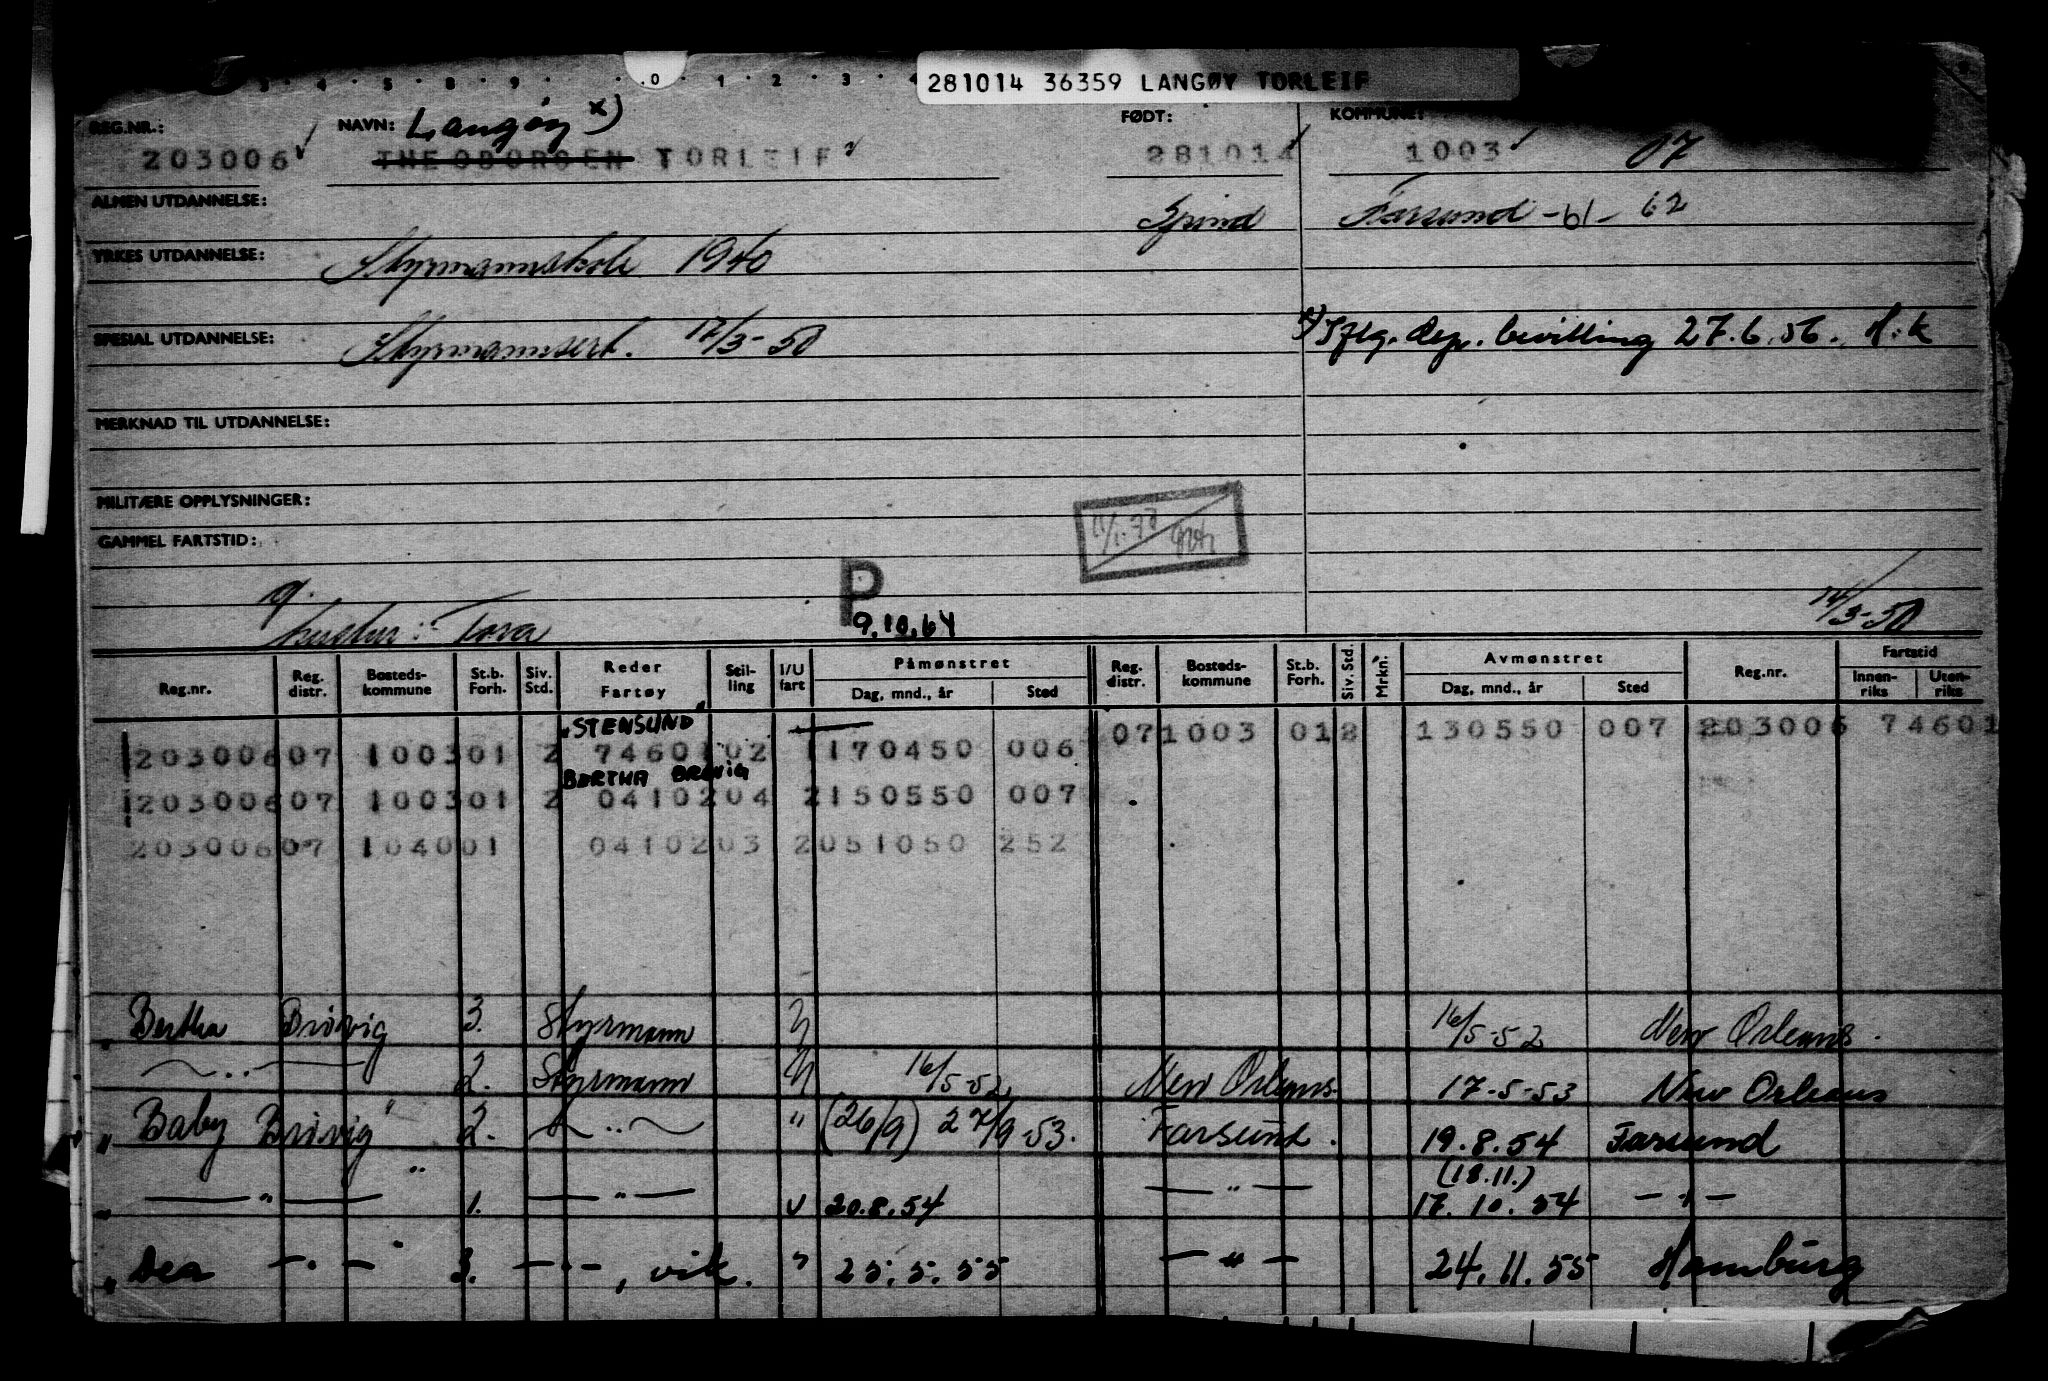 3 · 4 · 5 · 8 · 9 · 0 · 1 · 2 · 3 · 4
281014 36359 LANGØY TORLEIF
REG.NR.: NAVN: Langøy x) FØDT: KOMMUNE:
203006 THEODORSEN TORLEIF 281014 1003 07
ALMEN UTDANNELSE: Spind Farsund -61- 62
YRKES UTDANNELSE: Styrmannskole 1940
SPESIAL UTDANNELSE: Styrmannsert. 17/3-50 x) Iflg. dep. bevilling 27.6.56. H.k
MERKNAD TIL UTDANNELSE:
MILITÆRE OPPLYSNINGER:
GAMMEL FARTSTID:
P
g. hustru: Tora 9.10.64 14/3-50
Reg.nr. Reg. distr. Bosteds-kommune St.b. Forh. Siv. Std. Reder Fartøy Stil-ling I/U fart Påmønstret Dag, mnd., år Sted Reg. distr. Bosteds-kommune St.b. Forh. Siv. Std. Mrkn: Avmønstret Dag, mnd., år Sted Reg.nr. Fartstid Innen-riks Uten-riks
"STENSUND"
203006 07 1003 01 2 74601 02 1 170450 006 07 1003 01 2 130550 007 203006 74601
BERTHA BRØVIG
203006 07 1003 01 2 04102 04 2 150550 007
203006 07 1040 01 04102 03 2 051050 252
Bertha Brøvig 3. Styrmann U 16/5-52 New Orleans.
—..— 2. Styrmann U 16/5-52 New Orleans. 17-5-53 New Orleans
"Baby Brøvig" 2. —..— " (26/9) 27/9-53. Farsund. 19.8.54 Farsund
(18.11.)
" — " — " 1. — " — U 20.8.54 — " — 17.10.54 — " —
"Dea — . — " 3. — . —, vik. " 25.5.55 — " — 24.11.55 Hamburg